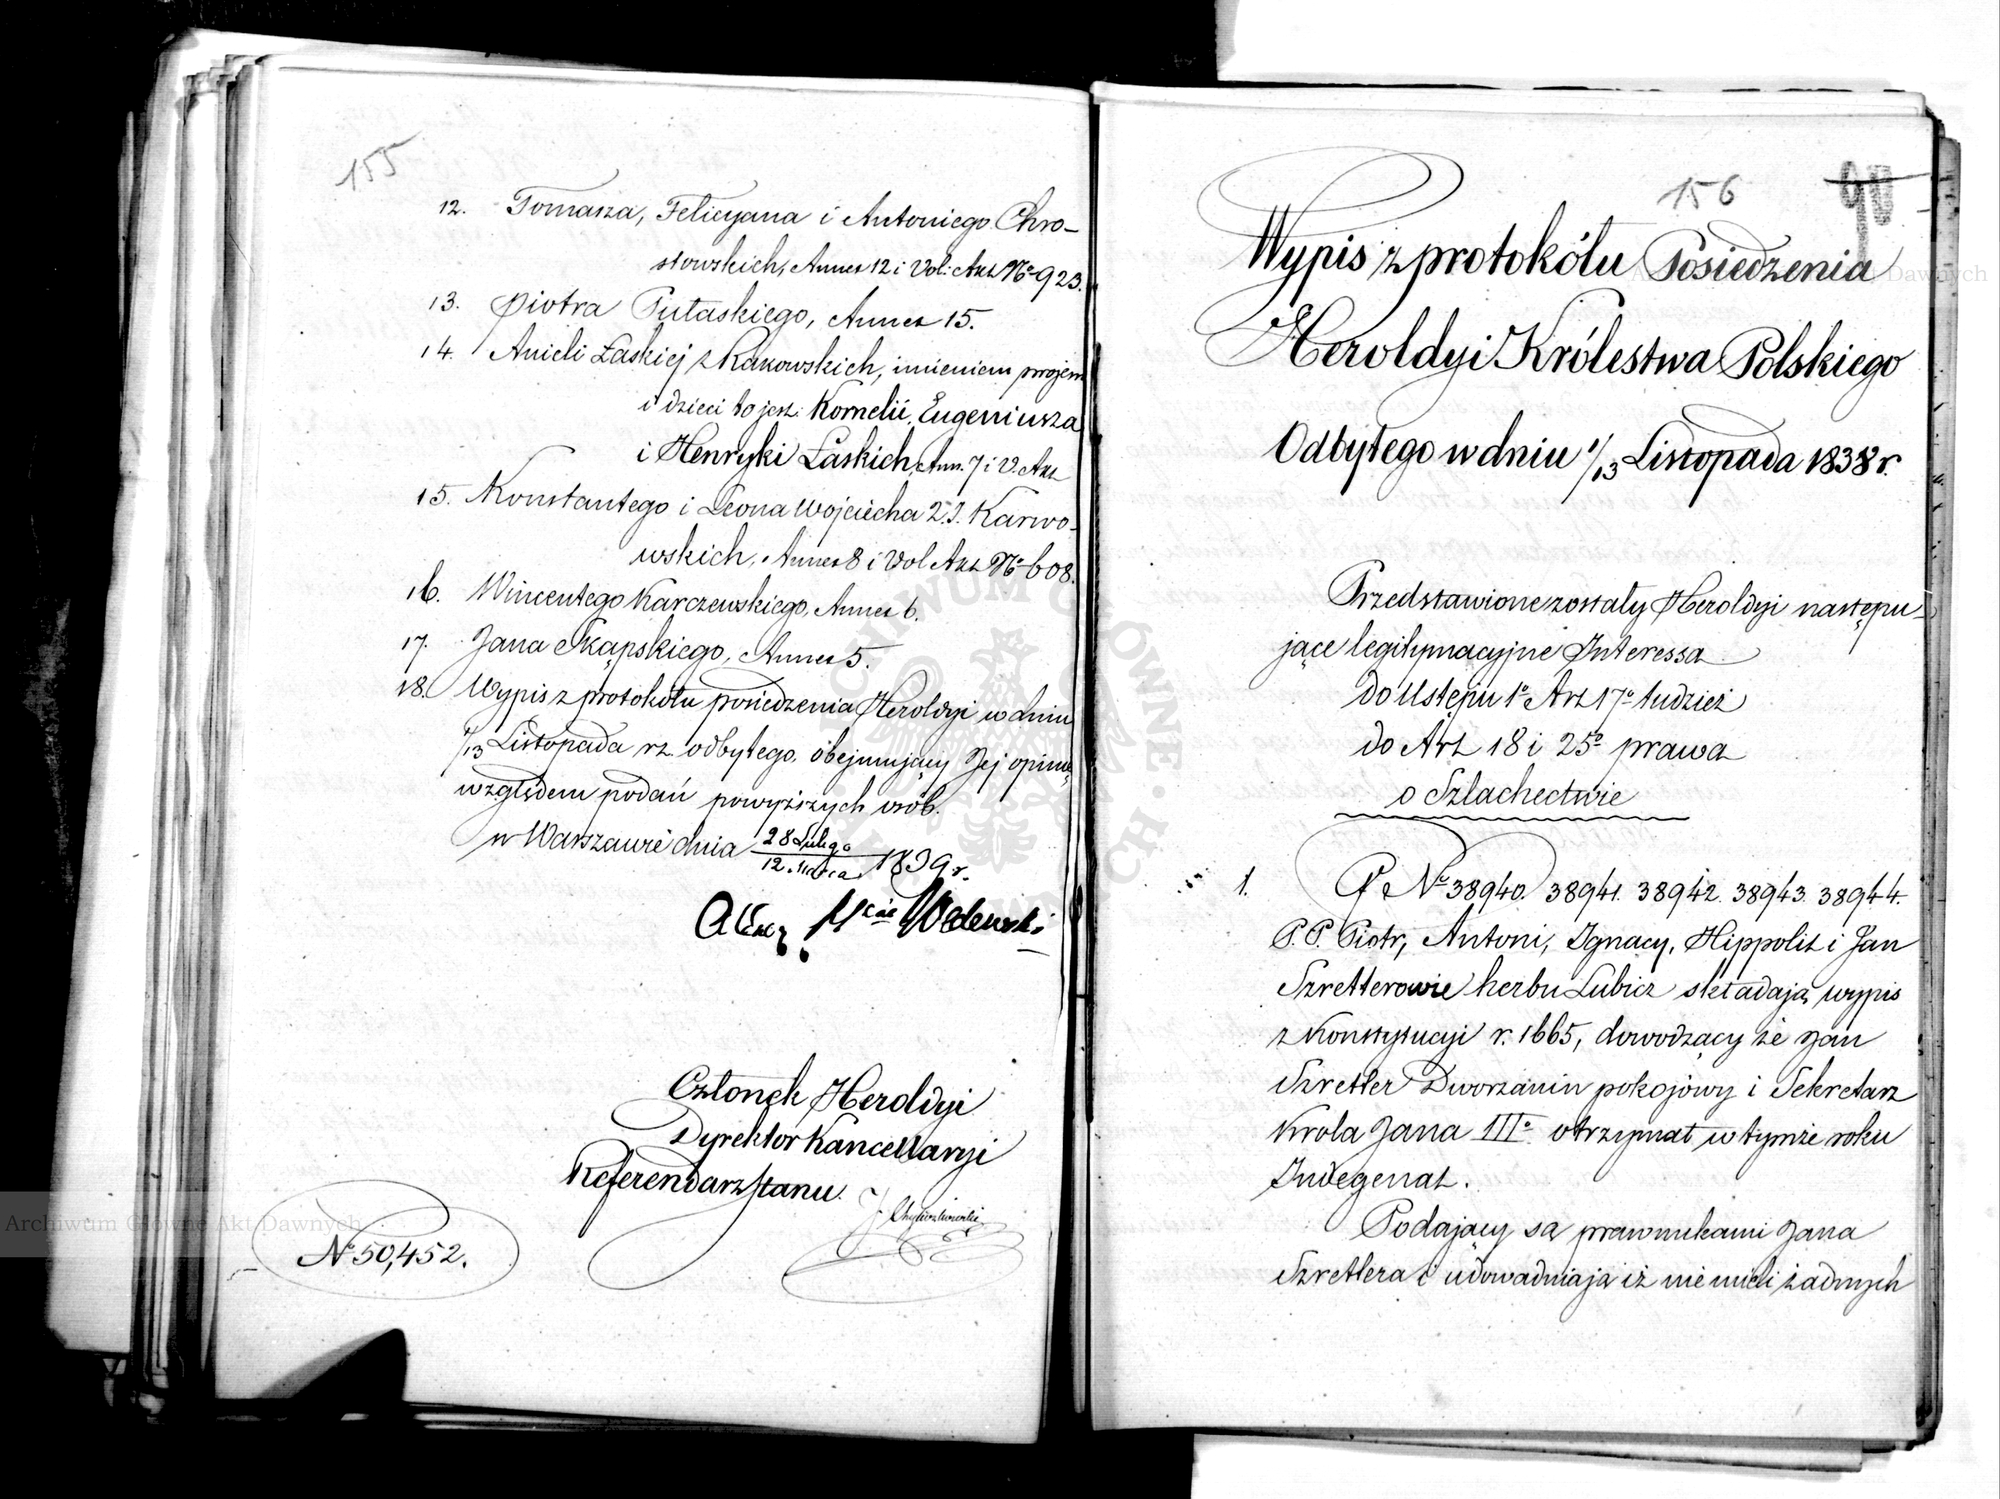 155
12. Tomasza, Felicyana i Antoniego Chro-
stowskich, Annex 12 i Vol: Akt No 923.
13. Piotra Pułaskiego, Annex 15.
14. Anieli Łaskiej z Rakowskich, imieniem swojem
i dzieci to jest: Kornelii, Eugeniusza
i Henryki Łaskich, Ann. 7 i V. Akt
15. Konstantego i Leona Wojciecha 2. I. Karwo-
wskich, Annex 8 i Vol Akt No 608.
16. Wincentego Karczewskiego, Annex 6.
17. Jana Skąpskiego, Annex 5.
18. Wypis z protokółu posiedzenia Heroldyi w dniu
1/13 Listopada rz. odbytego, obejmujący Jej opinię
względem podań powyższych osób.
w Warszawie dnia 28 Lutego / 12 Marca 1839 r.
Alex. Walewski
Członek Heroldyi
Dyrektor Kancellaryi
Referendarz Stanu
No 50,452.
156
90
Wypis z protokółu Posiedzenia
Heroldyi Królestwa Polskiego
Odbytego w dniu 1/13 Listopada 1838 r.
Przedstawione zostały Heroldyi następu-
jące legitymacyjne Interessa
do Ustępu 1o Art 17o tudzież
do Art 18 i 25o prawa
o Szlachectwie
1. No 38940. 38941. 38942. 38943. 38944.
P.P. Piotr, Antoni, Ignacy, Hippolit i Jan
Szretterowie herbu Lubicz składają wypis
z Konstytucyi r. 1665, dowodzący że Jan
Szretter Dworzanin pokojowy i Sekretarz
Krola Jana IIIo otrzymał w tymże roku
Indegenat.
Podający są prawnukami Jana
Szrettera i udowadniają iż nie mieli żadnych
Archiwum Główne Akt Dawnych